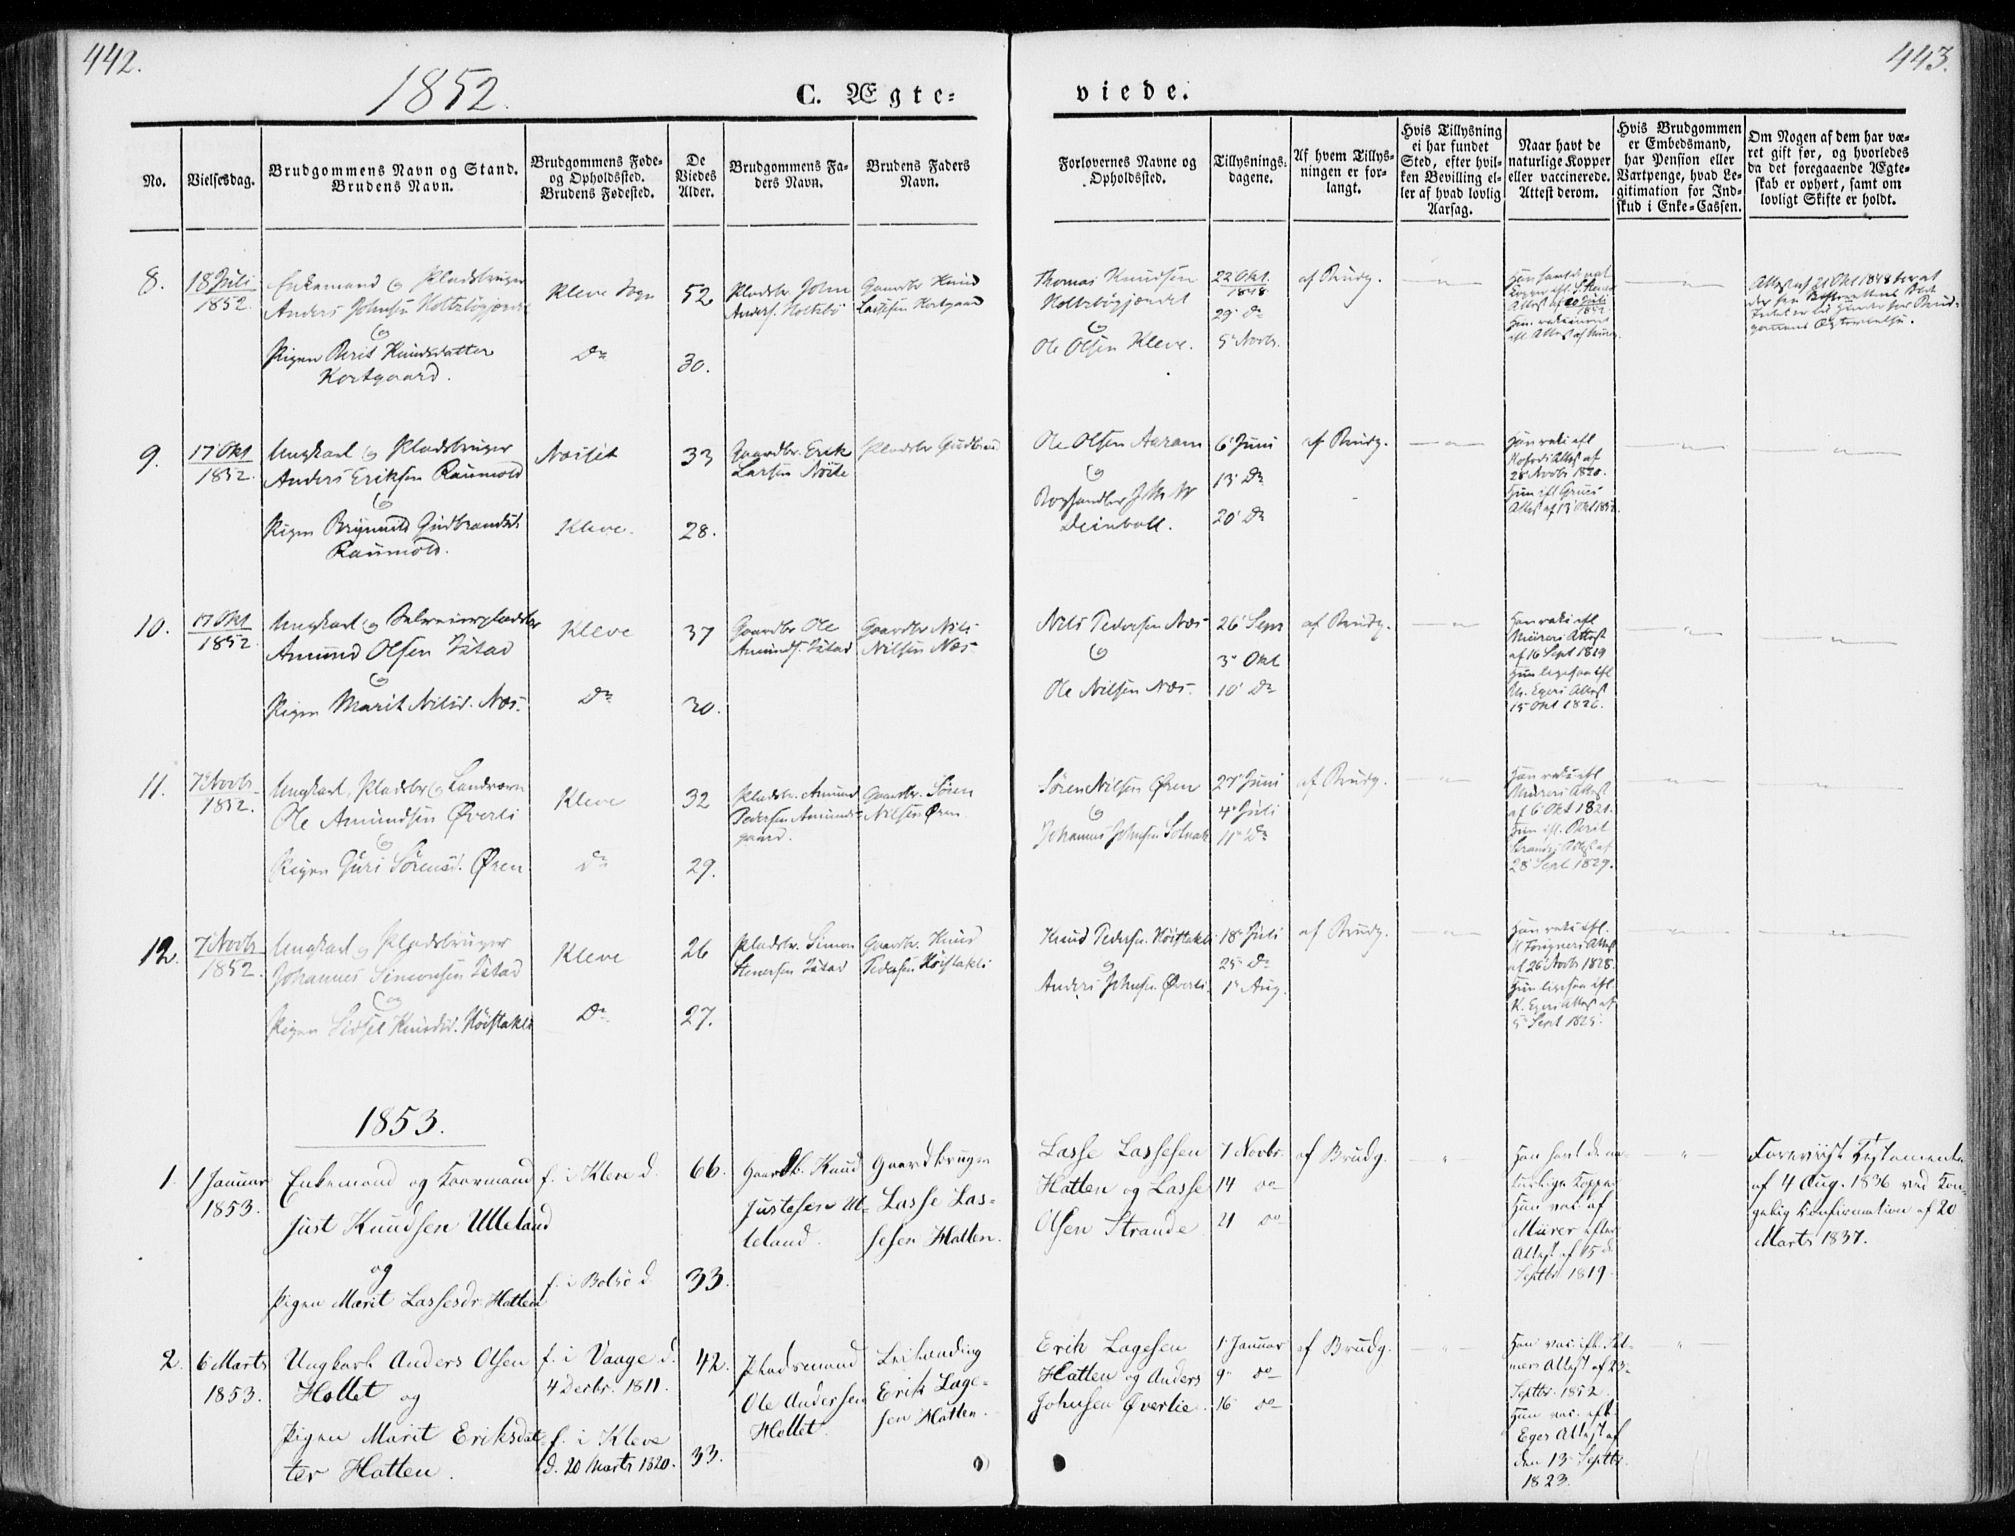 442.
443.
1852.
C. Ægte-
viede.
No.
Vielsesdag.
Brudgommens Navn og Stand.
Brudens Navn.
Brudgommens Føde-
og Opholdssted.
Brudens Fødested.
De
Viedes
Alder.
Brudgommens Fa-
ders Navn.
Brudens Faders
Navn.
Forlovernes Navne og
Opholdssted.
Tillysnings-
dagene.
Af hvem Tillys-
ningen er for-
langt.
Hvis Tillysning
ei har fundet
Sted, efter hvil-
ken Bevilling el-
ler af hvad lovlig
Aarsag.
Naar havt de
naturlige Kopper
eller vaccinerede.
Attest derom.
Hvis Brudgommen
er Embedsmand,
har Pension eller
Vartpenge, hvad Le-
gitimation for Ind-
skud i Enke-Cassen.
Om Nogen af dem har væ-
ret gift før, og hvorledes
da det foregaaende Ægte-
skab er ophørt, samt om
lovligt Skifte er holdt.
8.
18 Juli
1852.
Enkemand og Pladsbruger
Anders Johnsen
og
Pigen Berit Knudsdatter
Kortgaard.
Kleve Sogn
Do
52
30.
Pladsbr. John
Anders. Holtsbø
Gaardbr. Knud
Lassesen Kortgaard
Thomas Knudsen
og
Ole Olsen Kleve.
22 Okt.
1848
29 Do
5 Novbr.
af Brudg.
Attest af 21 Okt 1848
9.
17 Okt
1852.
Ungkarl og Pladsbruger
Anders Eriksen Raumold
og
Pigen Brynild Gudbrandsd.
Raumold.
Kleve.
33
28.
Gaardbr. Erik
Larsen
Pladsbr Gudbrand
Ole Olsen Aaram
og
J M W
Deinboll.
6 Juni
13 Do
20 Do
af Brudg.
Han vak. efl
Attest af
28 Novbr 1820.
Hun efl
Attest af 13 Okt 185
10.
17 Okt
1852
Ungkarl og
Amund Olsen Istad
og
Pigen Marit Nilsd. Næs.
Kleve
Do
37
30.
Gaardbr Ole
Amunds. Istad
Gaardbr Nils
Nilsen Næs
Nils Pedersen Næs
og
Ole Nilsen Næs.
26 Sept
3 Okt
10 Do
af Brudg.
Han vak. efl
Mürers Attest
af 16 Sept 1819
Hun ligesaa efl
Egers Attest
15 Okt 1826.
11.
7 Novbr
1852.
Ungkarl, Pladsbr og Landværn
Ole Amundsen Øverli
og
Pigen Guri Sørensd. Øren
Kleve
Do
32
29.
Pladsbr. Amund
Pedersen Amunds-
gaard.
Gaardbr. Søren
Nilsen Øren
Søren Nilsen Øren
og
Johannes Johnsen
27 Juni
4 Juli
11 Do
af Brudg.
Han vak. efl
Mürers Attest
af 6 Okt 1821.
Hun efl. Berit
Strandes Attest af
28 Sept 1829.
12.
7 Novbr
1852.
Ungkarl og Pladsbruger
Johannes Simonsen Istad
og
Pigen Sidsel Knudsd. Høistakli
Kleve
Do
26
27.
Pladsbr. Simon
Stenersen Istad
Gaardbr. Knud
Pedersen Høistakli
Knud Pedersen Høistakli
og
Anders Johnsen Øverli.
18 Juli
25 Do
1 Aug.
af Brudg.
Han vak. efl.
Attest
af 26 Novbr 1828.
Hun ligesaa efl.
K. Egers Attest af
5 Sept 1825.
1853.
1.
1 Januar
1853.
Enkemand og Kaarmand
Just Knudsen Ulleland
og
Pigen Marit Lassesdr. Hatten
f. i Kleve d.
f. i Bolsø d.
66.
33.
Gaardb. Knud
Justesen Ul-
leland.
Gaardbruger
Lasse Las-
sesen Hatten.
Lasse Lassesen
Hatten og Lasse
Olsen Strande
7 Novbr.
14 do
21 do
af Brudg.
Han havt de na-
turlige Kopper
Hun vac. af
Mürer efter
Attest af 15 d.
Septbr. 1819.
Forevist Testamente
af 4 Aug. 1836 ved Kon-
gelig Confirmation af 20
Marts 1837.
2.
6 Marts
1853.
Ungkarl Anders Olsen
Hollet og
Pigen Marit Eriksdat-
ter Hatten.
f. i Vaage d.
4 Decbr. 1811.
f. i Kleve
d. 20 Marts 1820.
42.
33.
Pladsmand
Ole Andersen
Hollet.
Leilænding
Erik Lage-
sen Hatten.
Erik Lagesen
Hatten og Anders
Johnsen Øverlie.
1 Januar
9 do
16 do
af Brudg.
Han vac. eft.
Attest af 23
Septbr. 1852.
Hun vac. eft.
Egers Attest af
den 13 Septbr.
1823.